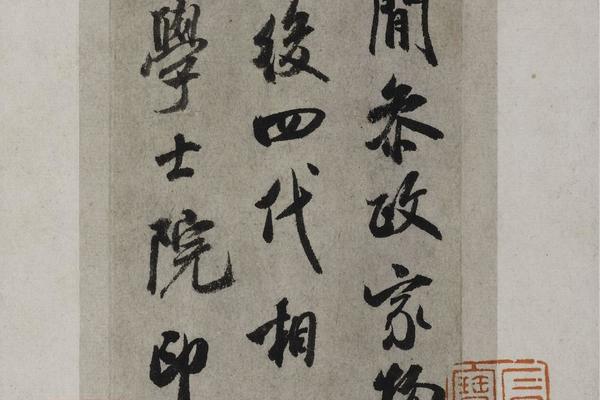 簡參政家物
後四代相
學士院印